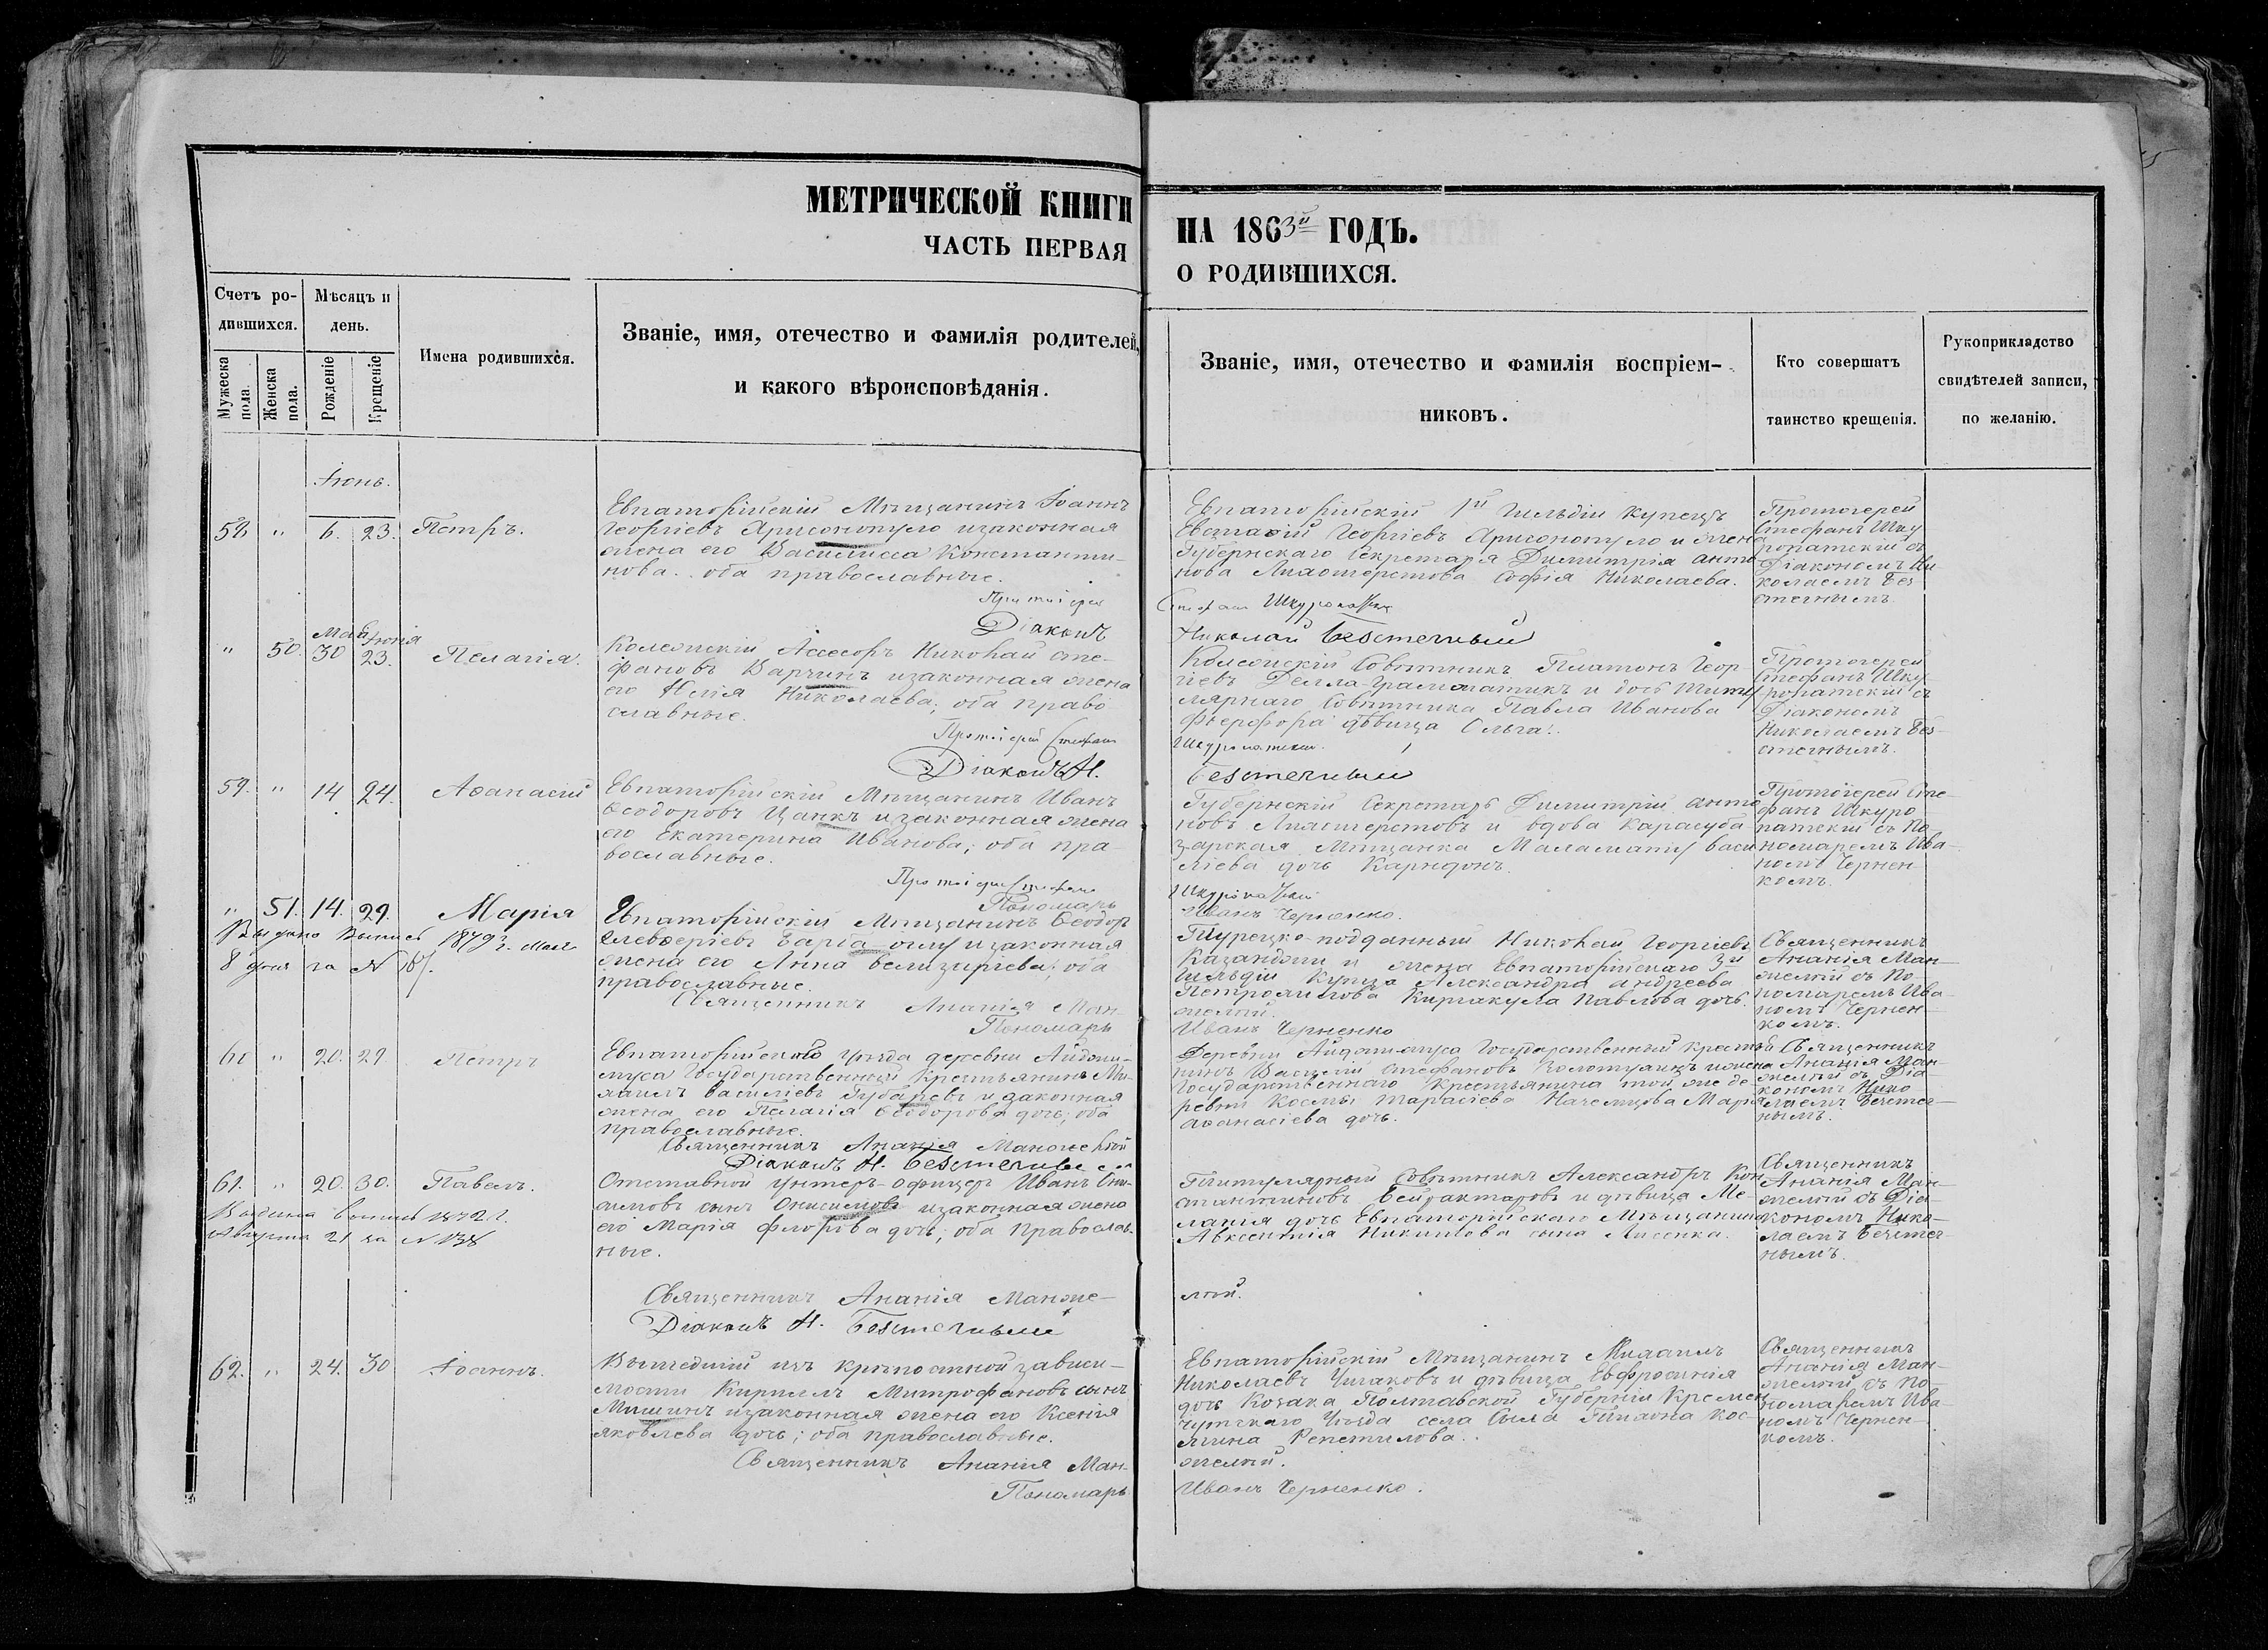 МЕТРИЧЕСКОЙ КНИГИ
ЧАСТЬ ПЕРВАЯ
НА 1863й ГОДЪ.
О РОДИВШИХСЯ.
Счетъ ро-
дившихся.
Мужеска пола.
Женска пола.
Мѣсяцъ и
день.
Рожденіе
Крещеніе
Имена родившихся.
Званіе, имя, отечество и фамилія родителей,
и какого вѣроисповѣданія.
Званіе, имя, отечество и фамилія воспріем-
никовъ.
Кто совершатъ
таинство крещенія.
Рукоприкладство
свидѣтелей записи,
по желанію.
Іюнь.
58 " 6. 23. Петръ.
Евпаторійскій Мѣщанинъ Іоаннъ
Георгіевъ Аригонопуло и законная
жена его Василисса Константи-
нова. оба православные.
Протоіерей
Діаконъ
Евпаторійскій 1й Гильдіи Купецъ
Евстафій Георгіевъ Аригонопуло и жена
Губернскаго Секретаря Димитрія Анто
нова Лихошерстова Софія Николаева.
Стефанъ Шкуропатскій
Николай Безстечный
Протоіерей
Стефанъ Шку
ропатскій съ
Діакономъ Ни
колаемъ Без
стечнымъ
Мая Іюнія
" 50. 30 23. Пелагія.
Колежскій Ассесоръ Николай Сте-
фановъ Варчинъ и законная жена
его Юлія Николаева; оба право
славные.
Протоіерей Стефанъ
Діаконъ Н.
Колежскій Совѣтникъ Платонъ Геор-
гіевъ Делла-Грамматикъ и дочь Титу
лярнаго Совѣтника Павла Иванова
дѣвица Ольга.
Шкуропатскій.
Безстечный
Протоіерей
Стефанъ Шку-
ропатскій съ
Діакономъ
Николаемъ Без-
стечнымъ.
59. " 14 24. Аѳанасій
Евпаторійскій Мѣщанинъ Иванъ
Ѳеодоровъ Цанкъ и законная жена
его Екатерина Иванова; оба пра-
вославные.
Протоіерей Стефанъ
Пономарь
Губернскій Секретарь Димитрій Анто
новъ Лихошерстовъ и вдова Карасуба
зарская Мѣщанка Васи
ліева дочь
Шкуропатскій
Иванъ Черненко.
Протоіерей Сте-
фанъ Шкуро
патскій съ По
номаремъ Ива-
номъ Чернен
комъ.
" 51. 14. 29. Марія
Выдана Выпись 1879 г. Мая
8 дня за №
Евпаторійскій Мѣщанинъ Ѳеодоръ
Елевферіевъ и законная
жена его Анна Велизаріева; оба
православные.
Священникъ Ананія Ман-
Пономарь
Турецко-подданный Николай Георгіевъ
Казанджи и жена Евпаторійскаго 3й
Гильдіи Купца Александра Андреева
Киріакула Павлова дочь.
желѣй.
Иванъ Черненко
Священникъ
Ананія Ман-
желѣй съ По
номаремъ Ива-
номъ Чернен-
комъ.
60 " 20. 29. Петръ
Евпаторійскаго уѣзда деревни
Государственный Крестьянинъ Ми-
хаилъ Василіевъ Губаревъ и законная
жена его Пелагія Ѳеодорова дочь; оба
православные.
Священникъ Ананія Манжелѣй
Діаконъ Н. Безстечный
Деревни Государственный Крестья
нинъ Василій Стефановъ и жена
Государственнаго Крестьянина той же де-
ревни Космы Тарасіева Марія
Аѳанасіева дочь.
Священникъ
Ананія Ман-
желѣй съ Діа
кономъ Нико
лаемъ Безстеч-
нымъ.
61. " 20. 30. Павелъ.
Выдана выпись 1872 г.
Августа 21 за № 138
Отставной Унтеръ-Офицеръ Иванъ Они-
симовъ сынъ Онисимовъ и законная жена
его Марія Флорова дочь; оба Православ-
ные.
Священникъ Ананія Манже-
Діаконъ Н. Безстечный
Титулярный Совѣтникъ Александръ Кон
стантиновъ Бейрактаровъ и дѣвица Ме-
ланія дочь Евпаторійскаго Мѣщанина
Авксентія Никитова сына Лисенка.
лѣй.
Священникъ
Ананія Ман-
желѣй съ Діа-
кономъ Нико-
лаемъ Безстеч-
нымъ.
62. " 24. 30 Іоаннъ.
Вышедшій изъ крѣпостной зависи-
мости Кириллъ Митрофановъ сынъ
Мишинъ и законная жена его Ксенія
Яковлева дочь; оба православные.
Священникъ Ананія Ман-
Пономарь
Евпаторійскій Мѣщанинъ Михаилъ
Николаевъ Чигаковъ и дѣвица Евфросинія
дочь Козака Полтавской Губерніи Кремен
чугскаго Уѣзда села
Репетилова.
желѣй.
Иванъ Черненко.
Священникъ
Ананія Ман-
желѣй съ По-
номаремъ Ива-
номъ Чернен-
комъ.